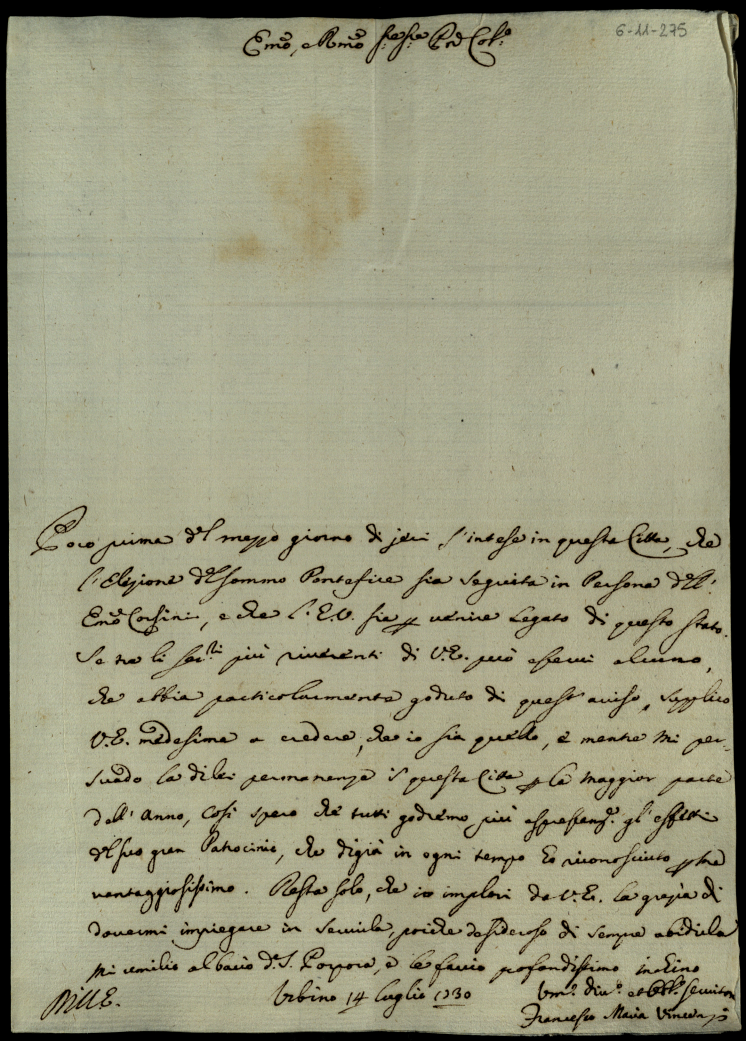 6-11-275
Emo, e Rmo Sig. Sig. Pron Col.o
Poco prima del mezzo giorno di jeri s'intese in questa Città, che
l'Elezione del sommo Pontefice sia seguita in Persona dell'
Emo Corsini, e che l'E.V. sia p venire Legato di questo stato.
Se tra li ser.ri più riverenti di V.E. può esservi alcuno,
che abbia particolarmente goduto di quest'aviso, supplico
V.E. medesima a credere, che io sia quello, e mentre mi per-
suado la di lei permanenza in questa Città p la maggior parte
dell'Anno, così spero che tutti godremo più gl'effetti
del suo gran Patrocinio, che digià in ogni tempo ho riconosciuto p me
vantaggiosissimo. Resta solo, che io implori da V.E. la grazia di
dovermi impiegare in servirla, poiche desideroso di sempre ubidirla
mi umilio al bacio d. S. Porpora, e le faccio profondissimo inchino
DiV.E. Urbino 14 luglio 1730 Um.o div.o et Obl.o servitore
Francesco Maria